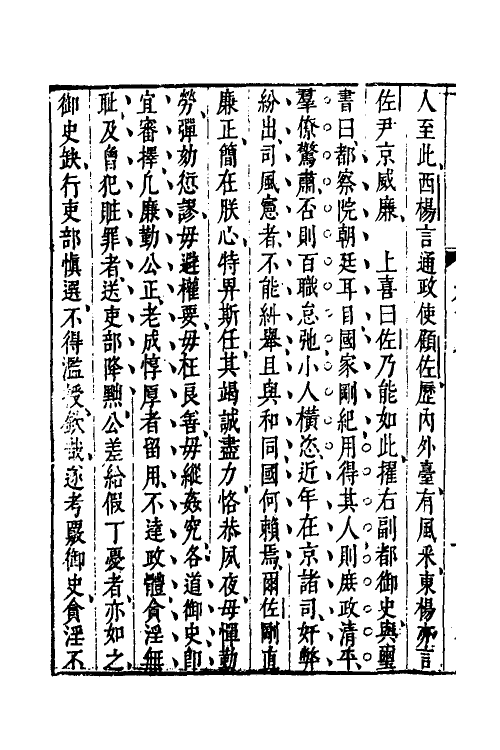 人至此西楊言通政使顧佐歷內外臺有風采東楊亦言
佐尹京威廉　上喜曰佐乃能如此擢右副都御史與璽
書曰都察院朝廷耳目國家剛紀用得其人則庶政清平
羣僚驚肅否則百職怠弛小人橫恣近年在京諸司奸弊
紛出司風憲者不能糾舉且與和同國何賴焉爾佐剛直
廉正簡在朕心特畀斯任其竭誠盡力恪恭夙夜毋憚勤
勞彈劾愆謬毋避權要毋枉良善毋縱姦宄各道御史卽
宜審擇凡廉勤公正老成惇厚者留用不達政體貪淫無
耻及曾犯贓罪者送吏部降黜公差給假丁憂者亦如之
御史缺行吏部愼選不得濫授欽哉遂考覈御史貪淫不